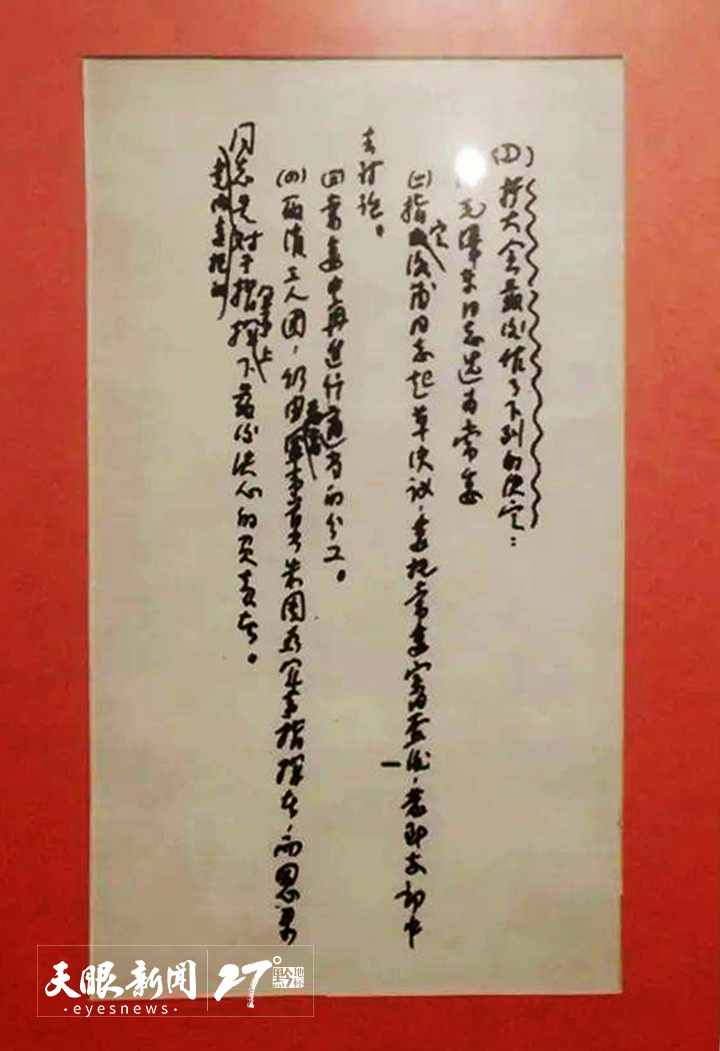 (D) 扩大会最後作了下列的决定：
毛澤东同志选为常委
(二)指定洛甫同志起草决议，委托常委審查後，发到支部中
去討論。
(三)常委中再進行適当的分工。
(四)取消三人团，仍由最高軍事首长朱周为軍事指揮者，而恩来
同志是党内委托的对于指揮軍事上下最後决心的负责者。
天眼新闻 27° 黔地标
·eyesnews·